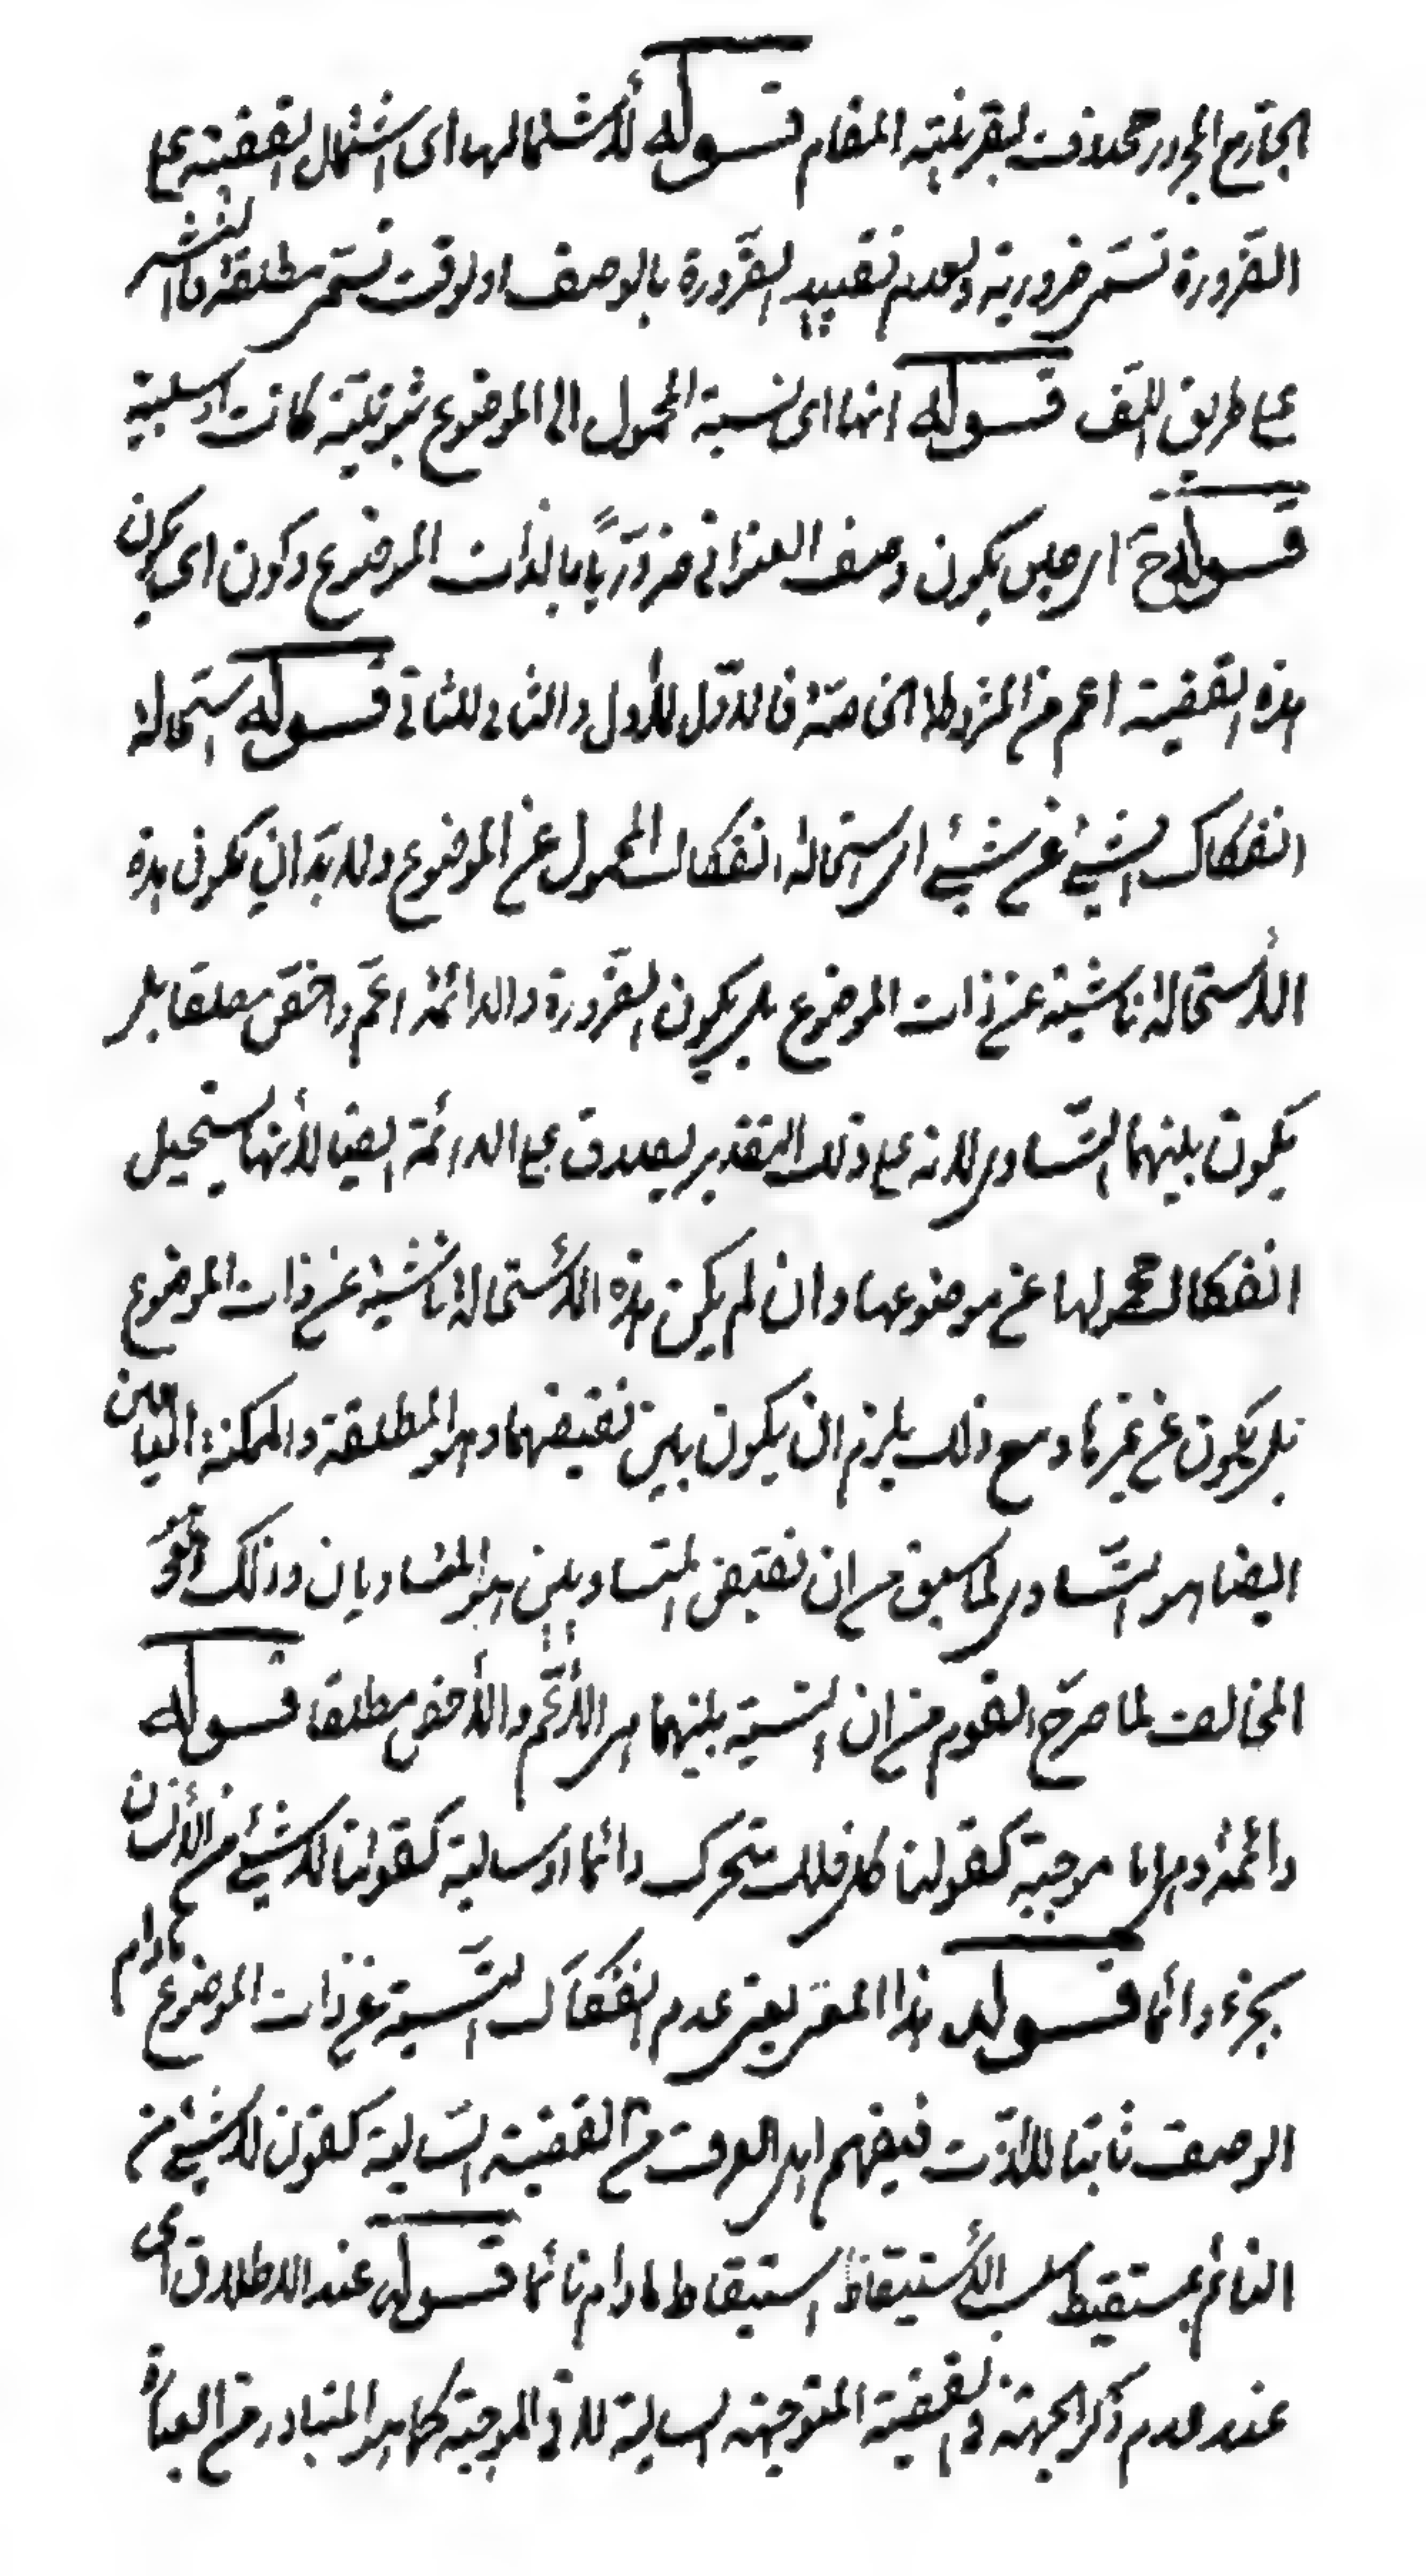 الجار مع المجرور محذوف بقرينة المقام قوله لأشتمالها اى اشتمال القضية على
الضرورة تسمى ضرورية ولعدم تقييد الضرورة بالوصف او لوقت تسمى مطلقة فالنشر
على طريق اللف قوله انها اى نسبة المحمول الى الموضوع ثبوتية كانت او سلبية
قوله ح اى حين يكون وصف العنوانى ضروريًا بالذات الموضوع وكون اى يكون
هذه القضية اعم من المشروطة الخاصة فالاول للأول والثانى للثانى قوله استحالة
انفكاك الشيئ عن شيئ اى استحالة انفكاك المحمول عن الموضوع ولا بد ان يكون هذه
الأستحالة ناشية عن ذات الموضوع بل يكون الضرورة والدائمة اعم واخص مطلقا بل
يكون بينهما التساوى لانه على ذلك التقدير يصدق على الدائمة ايضا لأنها يستحيل
انفكاك محمولها عن موضوعها وان لم يكن هذه الأستحالة ناشية عن ذات الموضوع
بل يكون عن غيرها ومع ذلك يلزم ان يكون بين نقيضهما وهو المطلقة والممكنة العامتين
ايضا هو التساوى لما سبق من ان نقيض المتساويين هو المتساويان وذلك
المخالف لما صرح القوم من ان النسبة بينهما هى الأعم والأخص مطلقا قوله
دائمة وهى اما موجبة كقولنا كل فلك متحرك دائما او سالبة كقولنا لا شيئ من الأنسان
بحجر دائما قوله هذا المعنى يعنى عدم انفكاك النسبة عن ذات الموضوع مادام
الوصف ثابتا للذات فيفهم اهل العرف من القضية السالبة كقولنا لا شيئ من
النائم بمستيقظ سلب الأستيقاظ استيقاظ مادام نائما قوله عند الاطلاق اى
عند عدم ذكر الجهة فى القضية الموجهة السالبة لا فى الموجبة كما هو المتبادر من العبارة